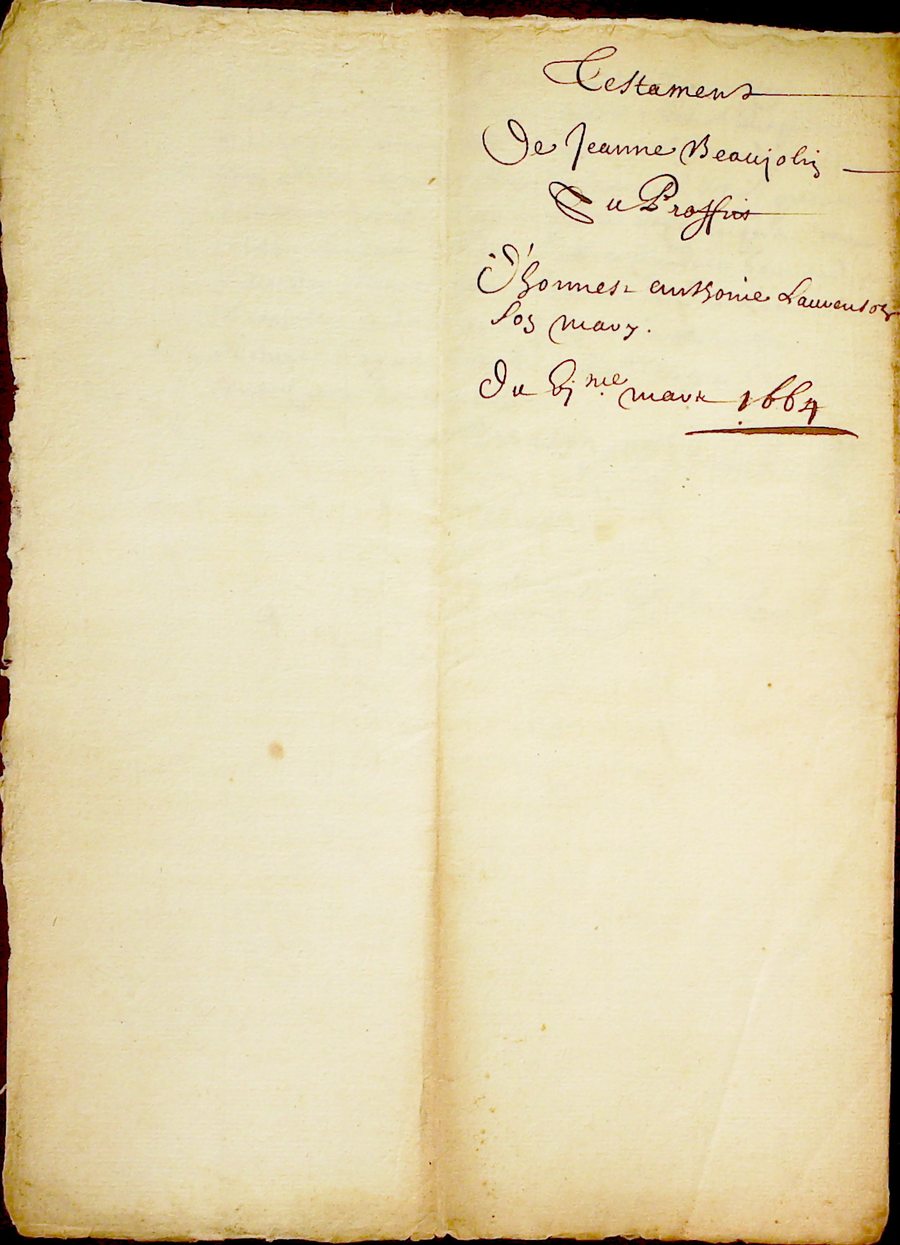 Testament
De Jeanne Beaujolin
Du Proffit
D'honnest anthoine Laurenson
son mary.
Du 6j.me mars 1664